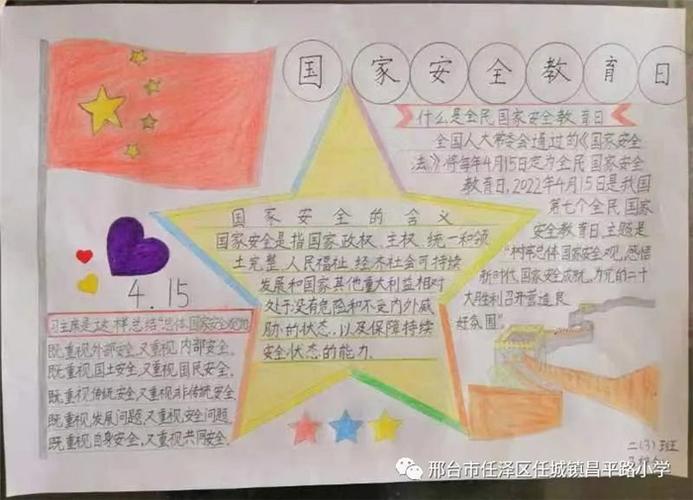 国家安全教育日
什么是全民国家安全教育日
全国人大常委会通过的《国家安全
法》将每年4月15日定为全民国家安全
教育日,2022年4月15日是我国
第七个全民国家
安全教育日,主题是
"树牢总体国家安全观,感悟
新时代国家安全成就,为党的二十
大胜利召开营造良
好氛围"
国家安全的含义
国家安全是指国家政权、主权、统一和领
土完整、人民福祉、经济社会可持续
发展和国家其他重大利益相对
处于没有危险和不受内外威
胁的状态,以及保障持续
安全状态的能力.
4.15
习主席是这样总结"总体国家安全观的
既重视外部安全,又重视内部安全,
既重视国土安全,又重视国民安全,
既重视传统安全,又重视非传统安全
既重视发展问题,又重视安全问题,
既重视自身安全,又重视共同安全.
二(3)班
邢台市任泽区任城镇昌平路小学